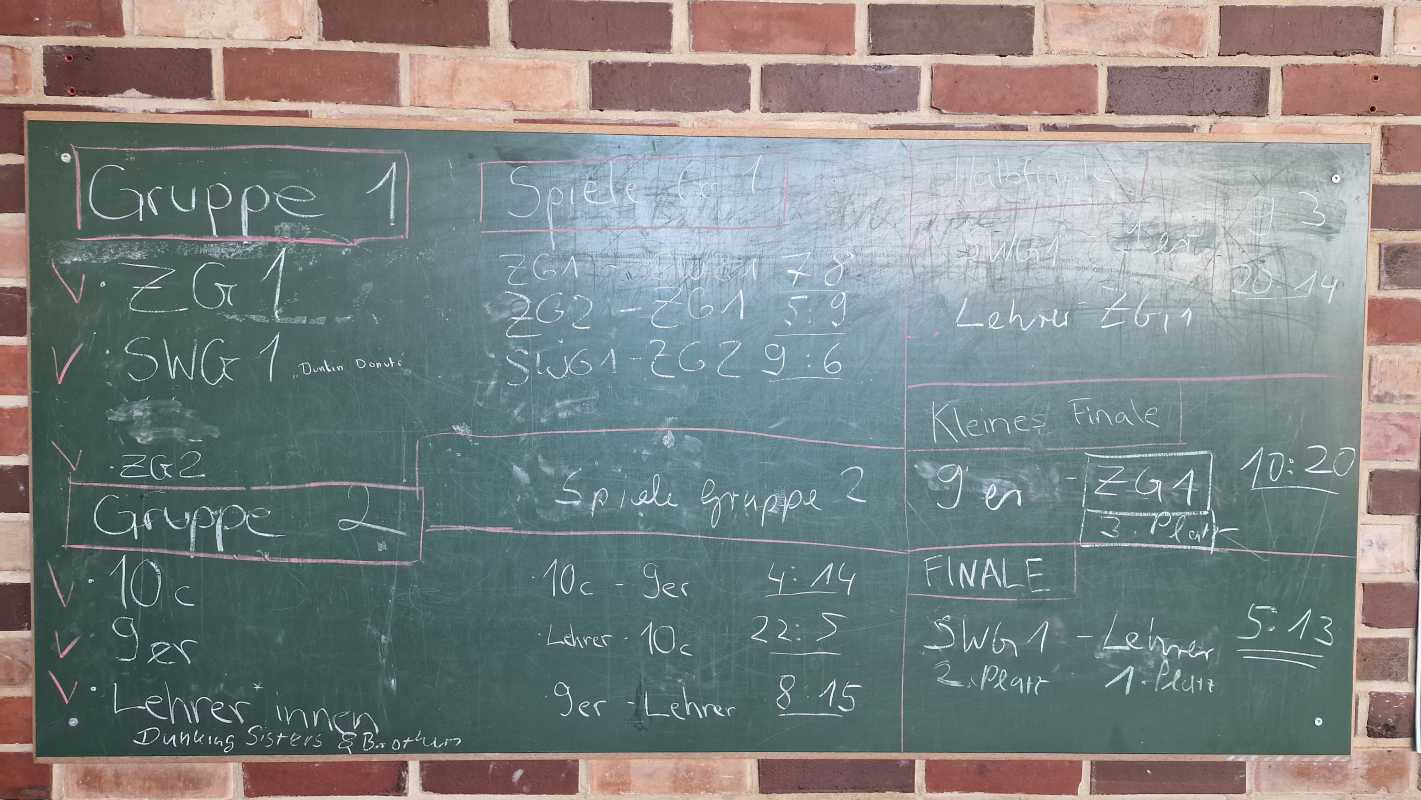 Gruppe 1
ZG1
SWG1 Dunkin Donuts
ZG2
Gruppe 2
10c
9er
Lehrer*innen
Dunking Sisters & Brothers
Spiele Gr 1
ZG1 - SWG1 7:8
ZG2 - ZG1 5:9
SWG1 - ZG2 9:6
Spiele Gruppe 2
10c - 9er 4:14
Lehrer - 10c 22:5
9er - Lehrer 8:15
Halbfinale
SWG1 - 9er 9 3
Lehrer - ZG1 20 14
Kleines Finale
9er - ZG1 10:20
3. Platz
FINALE
SWG1 - Lehrer 5:13
2. Platz 1. Platz